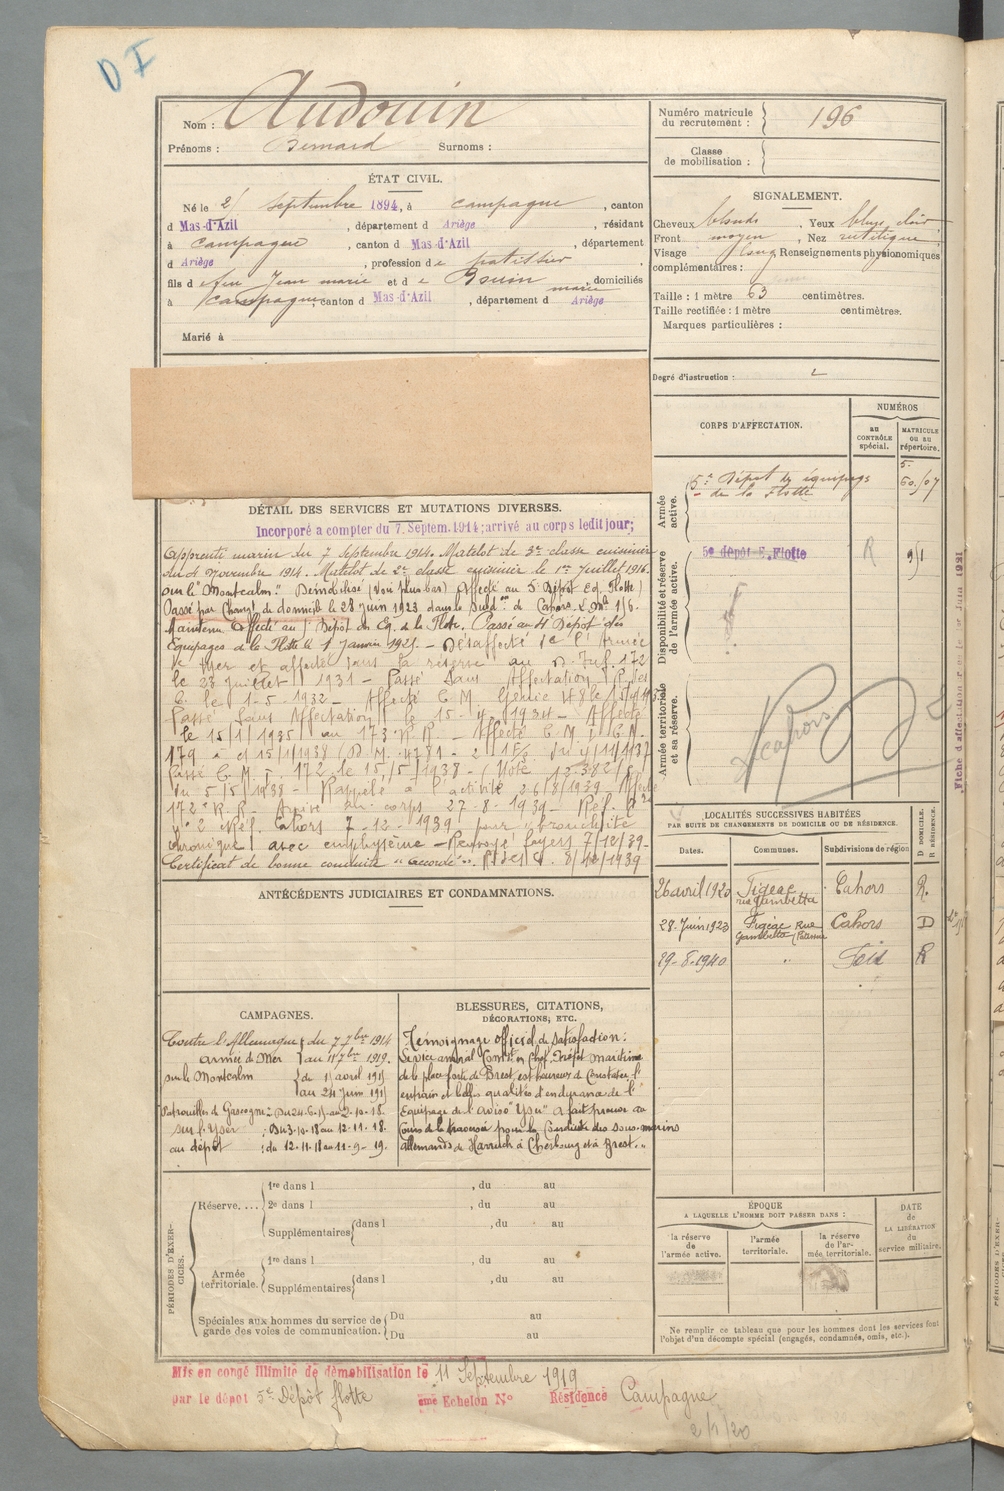 D I
Nom : Audouin
Prénoms : Bernard Surnoms :
Numéro matricule du recrutement : 196
Classe de mobilisation :
ÉTAT CIVIL.
Né le 2 septembre 1894, à Campagne, canton
d Mas-d'Azil, département d Ariège, résidant
à Campagne, canton d Mas-d'Azil, département
d Ariège, profession de patissier,
fils de feu Jean marie et de marie domiciliés
à Campagne canton d Mas-d'Azil, département d Ariège
Marié à
SIGNALEMENT.
Cheveux blonds, Yeux bleus clair
Front moyen, Nez rectiligne
Visage long Renseignements physionomiques
complémentaires :
Taille : 1 mètre 63 centimètres.
Taille rectifiée : 1 mètre centimètres.
Marques particulières :
Degré d'instruction : 2
CORPS D'AFFECTATION.
NUMÉROS
au CONTRÔLE spécial.
MATRICULE ou au répertoire.
Armée active.
5e Dépôt des équipages
de la Flotte
Disponibilité et réserve de l'armée active.
5e dépôt E. Flotte R
Armée territoriale et sa réserve.
Cahors
Fiche d'affectation
DÉTAIL DES SERVICES ET MUTATIONS DIVERSES.
Incorporé à compter du 7 Septem. 1914; arrivé au corps ledit jour;
Apprenti marin du 7 Septembre 1914. Matelot de 3e classe cuisinier
du 4 Novembre 1914. Matelot de 2e classe cuisinier le 1er Juillet 1916.
sur le "Montcalm". Démobilisé (voir plus bas) Affecté au 5e Dépôt Eq. Flotte)
Passé par Changt de domicile le 28 Juin 1923 dans la Subdon de Cahors.
Maintenu Affecté au Dépôt des Eq. de la Flotte. Passé au 4e Dépôt des
Equipages de la Flotte le 1 Janvier 192 . - Désaffecté de l'Armée
de Mer et affecté dans la réserve au D. Inf. 172
le 23 juillet 1931 - Passé Sans Affectation
C. le 1-5-1932 - Affecté C. M. Génie
Passé Sans Affectation le 15- 1934 - Affecté
le 15/1/1935 au 173e R.R. - Affecté C. M. I. C.N.
179 le 15/1/1938 (D.M. 4781 - 2 1 E/S du 4/11/1937
Passé C. M. I. 172 le 15/5/1938 - (Note 12.382/
du 5/5/1938 - Rappelé à l'activité 26/8/1939 Affecté
172e R.R. Arrivé au corps 27-8-1939 - Réf.
No 2 Réf. Cahors 7-12-1939 pour bronchite
chronique avec emphysème - Renvoyé foyers 7/12/39-
Certificat de bonne conduite "accordé".
ANTÉCÉDENTS JUDICIAIRES ET CONDAMNATIONS.
LOCALITÉS SUCCESSIVES HABITÉES
PAR SUITE DE CHANGEMENTS DE DOMICILE OU DE RÉSIDENCE.
Dates. Communes. Subdivisions de région D DOMICILE. R RÉSIDENCE.
26 avril 1920 Figeac rue Gambetta Cahors R.
28 Juin 1923 Figeac Rue Gambetta Cahors D
29-8-1940 " R
CAMPAGNES.
Contre l'Allemagne du 7 7bre 1914
armée de Mer au 11 7bre 1919.
sur le Montcalm du 1 avril 191
au 24 juin 191
Patrouilles de Gascogne: Du 24-6- au 2-10-18.
sur l'Yser : Du 3-10-18 au 12-11-18.
au dépôt : du 12-11-18 au 11-9-19.
BLESSURES, CITATIONS,
DÉCORATIONS, ETC.
Témoignage officiel de satisfaction :
Le vice amiral Comdt en Chef, Préfet maritime
de la place forte de Brest, est heureux de constater l'
entrain et belles qualités d'endurance de l'
Equipage de l'aviso "Yser" a fait preuve au
Cours de la traversée pour la Conduite des sous-marins
allemands de Harwich à Cherbourg et à Brest.
PÉRIODES D'EXERCICES.
Réserve....
1re dans l , du au
2e dans l , du au
Supplémentaires dans l , du au
Armée territoriale.
1re dans l , du au
Supplémentaires dans l , du au
Spéciales aux hommes du service de garde des voies de communication.
Du au
Du au
ÉPOQUE
A LAQUELLE L'HOMME DOIT PASSER DANS :
la réserve de l'armée active.
l'armée territoriale.
la réserve de l'armée territoriale.
DATE de LA LIBÉRATION du service militaire.
Ne remplir ce tableau que pour les hommes dont les services font
l'objet d'un décompte spécial (engagés, condamnés, omis, etc.).
Mis en congé illimité de démobilisation le 11 Septembre 1919
par le dépôt 5e Dépôt flotte ème Echelon N° Résidence Campagne
2/1/20